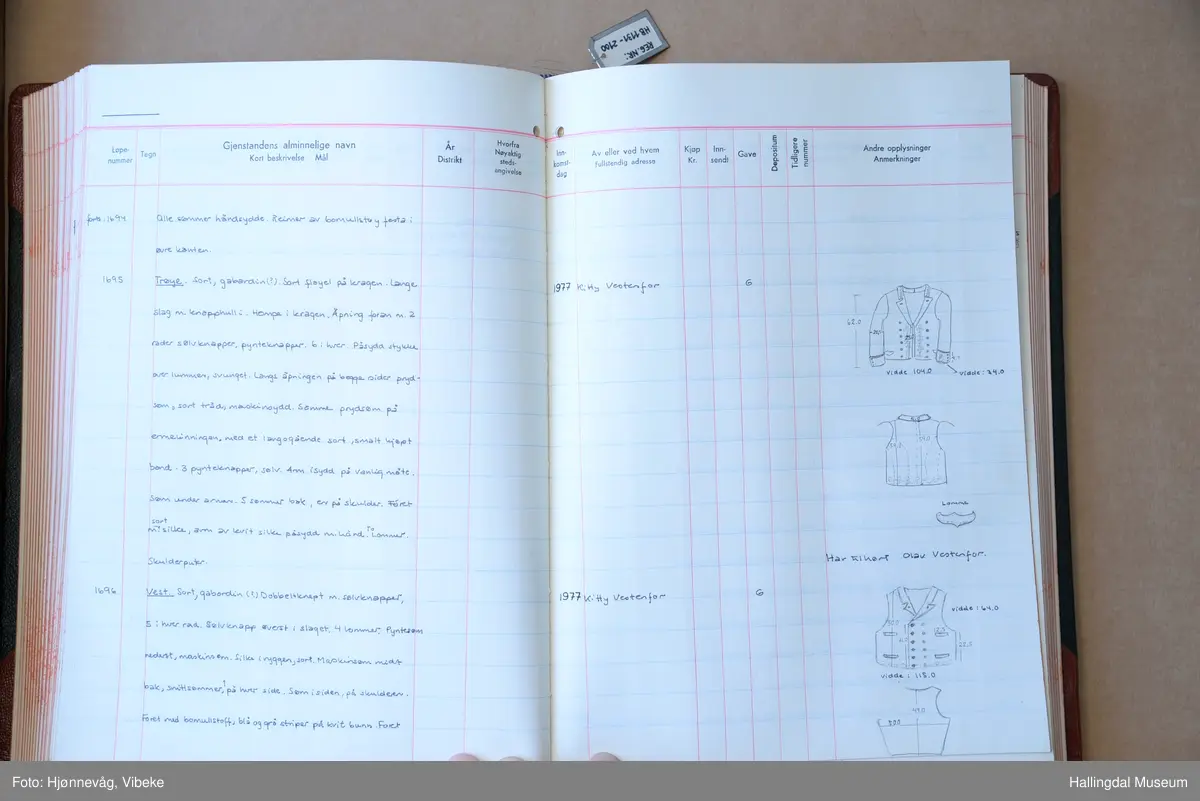 REG.NR:
HB 1131 - 2100
Løpe-
nummer
Tegn
Gjenstandens alminnelige navn
Kort beskrivelse Mål
År
Distrikt
Hvorfra
Nøyaktig
steds-
angivelse
Inn-
komst-
dag
Av eller ved hvem
Fullstendig adresse
Kjøp
Kr.
Inn-
sendt
Gave
Depositum
Tidligere
nummer
Andre opplysninger
Anmerkninger
forts. 1694
Alle sømmer håndsydde. Reimer av bomullstøy festa i
øvre kanten.
1695
Trøye. Sort, gabardin(?). Sort fløyel på kragen. Lange
slag m. knapphull i. Hempe i kragen. Åpning foran m. 2
rader sølvknapper, pynteknapper. 6 i hver. Påsydd stykke
over lummen, svunget. Langs åpningen på begge sider pryd-
søm, sort tråd, maskinsydd. Samme prydsøm på
ermelinningen, med et langsgående sort, smalt kjøpt
bånd. 3 pynteknapper, sølv. Arm isydd på vanlig måte.
Søm under armen. 5 sømmer bak, en på skulder. Foret
m. sort silke, arm av kvit silke påsydd m. hånd. To lommer.
Skulderputer.
1977 Kitty Vestenfor
G
62,0
vidde 104,0
vidde: 24,0
Lomme
Har tilhørt Olav Vestenfor.
1696
Vest. Sort, gabardin (?) Dobbeltknept m. sølvknapper,
5 i hver rad. Sølvknapp øverst i slaget. 4 lommer. Pyntesøm
nederst, maskinsøm. Silke i ryggen, sort. Maskinsøm midt
bak, snittsømmer, 1 på hver side. Søm i siden, på skulderen.
Foret med bomullstoff, blå og grå striper på kvit bunn. Foret
1977 Kitty Vestenfor
G
vidde: 64,0
vidde: 118,0
49,0
Foto: Hjønnevåg, Vibeke
Hallingdal Museum